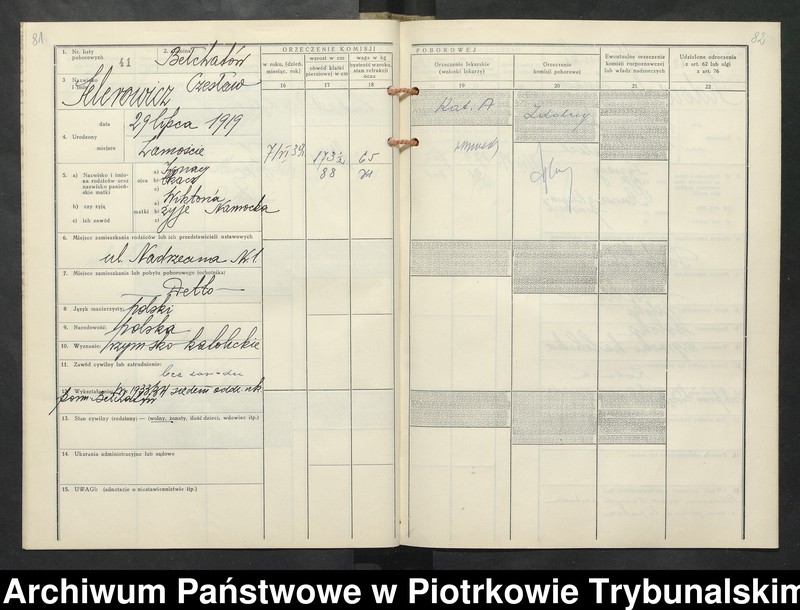 81.
82
ORZECZENIE KOMISJI
POBOROWEJ
1. Nr. listy poborowych 41
2. Gmina Bełchatów
w roku, (dzień, miesiąc, rok)
wzrost w cm
obwód klatki piersiowej w cm
waga w kg
bystrość wzroku, stan refrakcji oczu
Orzeczenie lekarskie (wnioski lekarzy)
Orzeczenie komisji poborowej
Ewentualne orzeczenie komisji rozpoznawczej lub władz nadzorczych
Udzielone odroczenia z art. 62 lub ulgi z art. 76
16 17 18 19 20 21 22
3 Nazwisko i imię Selerowicz Czesław
Kat. A
Zdolny
4. Urodzony
data 29 lipca 1919
miejsce Zamoście
7/VI 39. 173½ 65
88
5. a) Nazwisko i imiona rodziców oraz nazwisko panieńskie matki
b) czy żyją
c) ich zawód
ojca a) Ignacy
b)
c)
matki a) Wiktoria
b) żyje Namocka
c)
6. Miejsce zamieszkania rodziców lub ich przedstawicieli ustawowych
ul. Nadrzeczna Nr. 1
7. Miejsce zamieszkania lub pobytu poborowego (ochotnika)
Detto
8 Język macierzysty: polski
9. Narodowość: polska
10. Wyznanie: rzymsko katolickie
11. Zawód cywilny lub zatrudnienie:
bez zawodu
12. Wykształcenie: 1933/34 siedem oddz.
Bełchatów
13. Stan cywilny (rodzinny) — (wolny, żonaty, ilość dzieci, wdowiec itp.)
14. Ukarania administracyjne lub sądowe
15. UWAGI: (adnotacje o niestawiennictwie itp.)
Archiwum Państwowe w Piotrkowie Trybunalskim